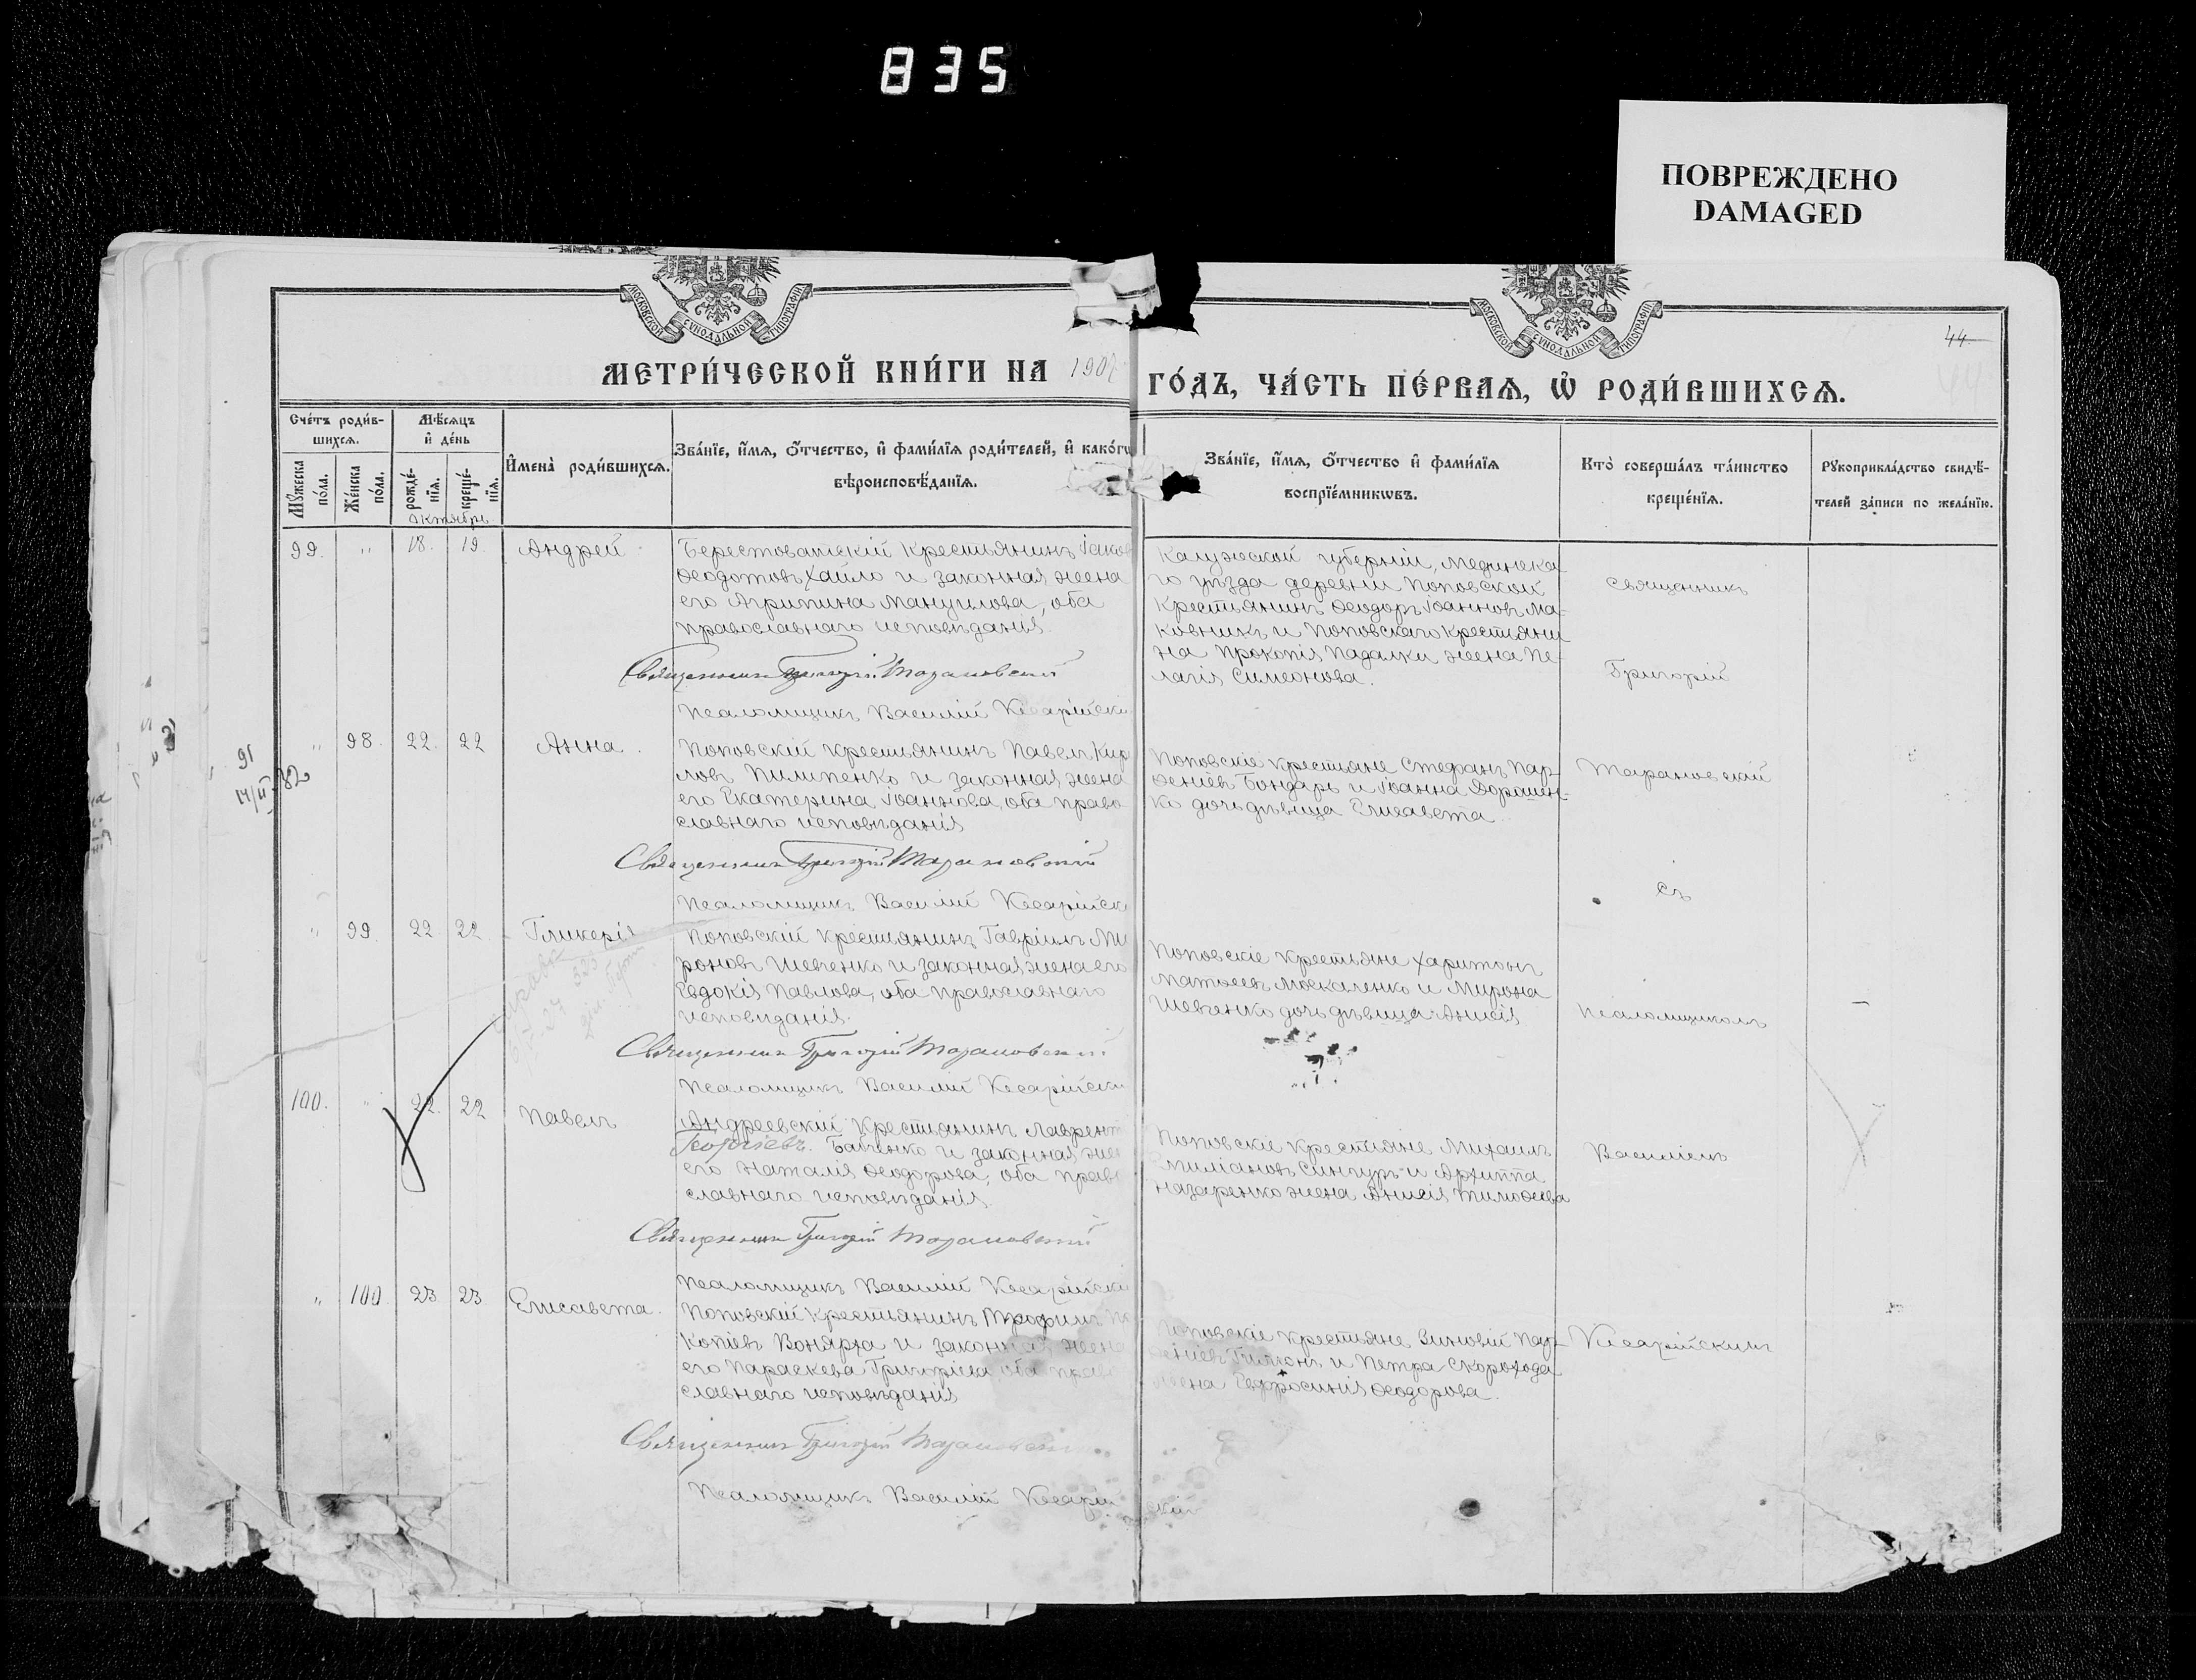 835
ПОВРЕЖДЕНО
DAMAGED
МОСКОВСКОЙ СѴНОДАЛЬНОЙ ТИПОГРАФІИ
МОСКОВСКОЙ СѴНОДАЛЬНОЙ ТИПОГРАФІИ
44
МЕТРИ́ЧЕСКОЙ КНИ́ГИ НА 190
ГО́ДЪ, ЧА́СТЬ ПЕ́РВАѦ, Ѡ҆ РОДИ́ВШИХСѦ.
Сче́тъ роди́в-
шихсѧ.
Мѣ́сѧцъ
и҆ де́нь
Мꙋжеска
по́ла.
Же́нска
по́ла.
рожде́-
нїѧ.
креще́-
нїѧ.
И҆мена̀ роди́вшихсѧ.
Зва́нїе, и҆́мѧ, ѻ҆́тчество, и҆ фами́лїѧ роди́телей, и҆ како́гѡ
вѣроисповѣ́данїѧ.
Зва́нїе, и҆́мѧ, ѻ҆́тчество и҆ фами́лїѧ
воспрїе́мникѡвъ.
Кто̀ соверша́лъ та́инство
креще́нїѧ.
Рꙋкоприкла́дство свидѣ́-
телей за́писи по жела́нїю.
Октябрь.
99. " 18. 19. Андрей
Берестоватскій крестьянинъ Іаков
Ѳеодотовъ Хайло и законная жена
его Агрипина Мануилова, оба
православнаго исповѣданія.
Священникъ Григорій Тарановскій
Псаломщикъ Василій Кесарійски
Калужской губерніи, Медынска-
го уѣзда деревни Поповской
крестьянинъ Ѳеодоръ Іоанновъ Ма-
ковникъ и Поповскаго крестьяни-
на Прокопія Падалки жена Пе-
лагія Симеонова.
Священникъ
Григорій
91
" 98. 22. 22 Анна.
Поповскій крестьянинъ Павелъ Кир
ловъ Пилипенко и законная жена
его Екатерина Іоаннова, оба право
славнаго исповѣданія
Священникъ Григорій Тарановскій
Псаломщикъ Василій Кесарійск
Поповскіе крестьяне Стефанъ Пар-
ѳеніевъ Бондарь и Іоанна Дорошен-
ко дочь дѣвица Елисавета
Тарановскій
съ
" 99. 22. 22. Гликерія
Поповскій крестьянинъ Гавріилъ Ми
роновъ Шевченко и законная жена его
Евдокія Павлова, оба православнаго
исповѣданія.
Священникъ Григорій Тарановскій
Псаломщикъ Василій Кесарійски
Поповскіе крестьяне Харитонъ
Матѳеевъ Москаленко и Мирона
Шевченко дочь дѣвица Анисія
Псаломщикомъ
100. " 22. 22 Павелъ
Андреевскій крестьянинъ Лаврент
Георгіевъ Бабченко и законная жен
его Наталія Ѳеодорова, оба право
славнаго исповѣданія.
Священникъ Григорій Тарановскій
Псаломщикъ Василій Кесарійски
Поповскіе крестьяне Михаилъ
Емиліановъ Сингуръ и Архиппа
Назаренко жена Анисія Тимоѳеева
Василіемъ
" 100. 23 23 Елисавета.
Поповскій крестьянинъ Трофимъ
копіевъ Вонярха и законная жена
его Параскева Григоріева, оба право
славнаго исповѣданія
Священникъ Григорій Тарановскій
Псаломщикъ Василій Кесарійскій
Поповскіе крестьяне Зиновій Пар-
ѳеніевъ и Петра Скорохода
жена Евфросинія Ѳеодорова.
Кесарійскимъ